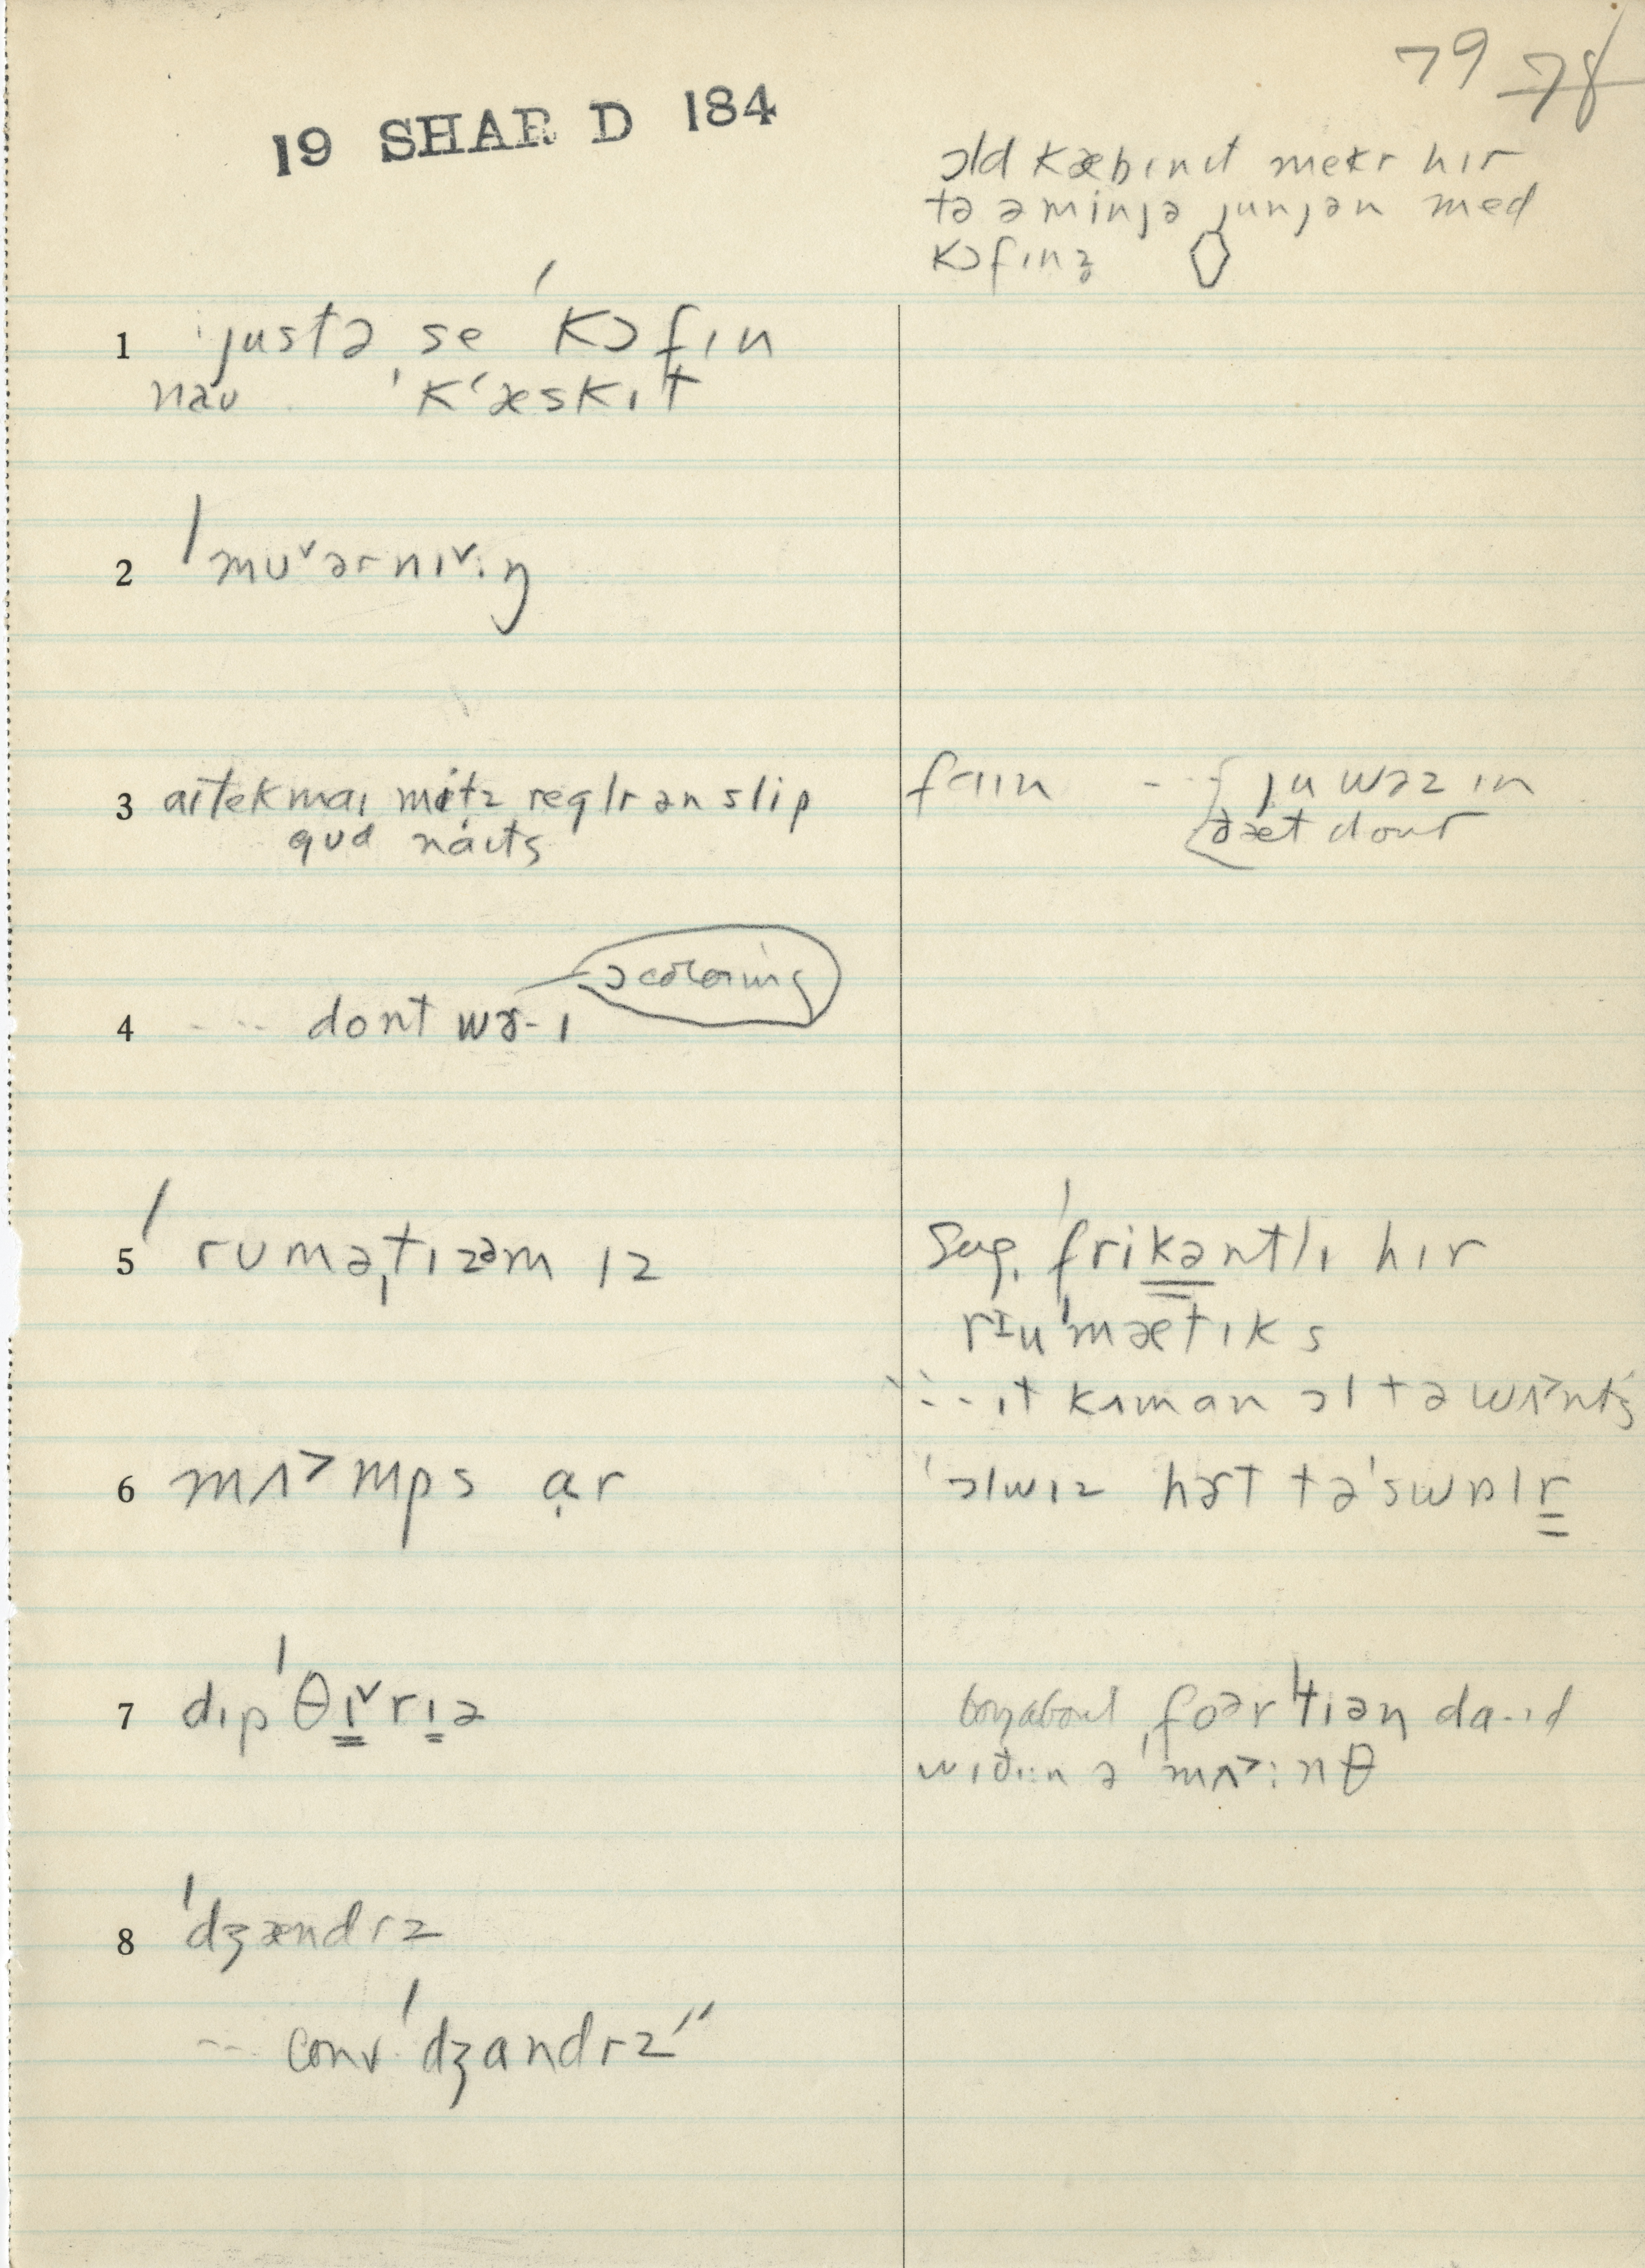 79 78
19 SHAR D 184
ɔld kæbɪnɪt mekr hɪr
tə ə minjə junjən med
kɔfɪnz
1 justə se ˈkɔfɪn
naʊ ˈkʻæskɪt
2 ˈmʊ˅ərnɪ˅·ŋ
3 aɪ tek maɪ mɪtz reglr ən slip
gud naɪts
faɪn --- { ju wəz ɪn
ðæt dour
ɔ coloring
4 --- dont wɝ-ɪ
5 ˈrumə,tɪzəm ɪz
Sug. ˈfrikəntlɪ hɪr
rɪuˈmætɪks
--- ɪt kʌm an ɔl tə wʌ˃nts
6 mʌ˃mps ɑ̣r
ˈɔlwɪz hɝt tə ˈswɒlr
7 dɪpˈθɪ˅rɪə
boy about foərˈtiən da·ɪd
wɪðɪn ə mʌ˃:nθ
8 ˈdʒændrz
--- conv. ˈdʒandrz"